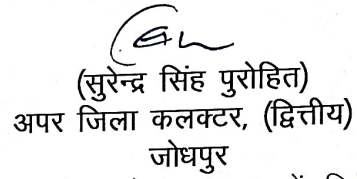 (सुरेन्द्र सिंह पुरोहित)
अपर जिला कलक्टर, (द्वित्तीय)
जोधपुर